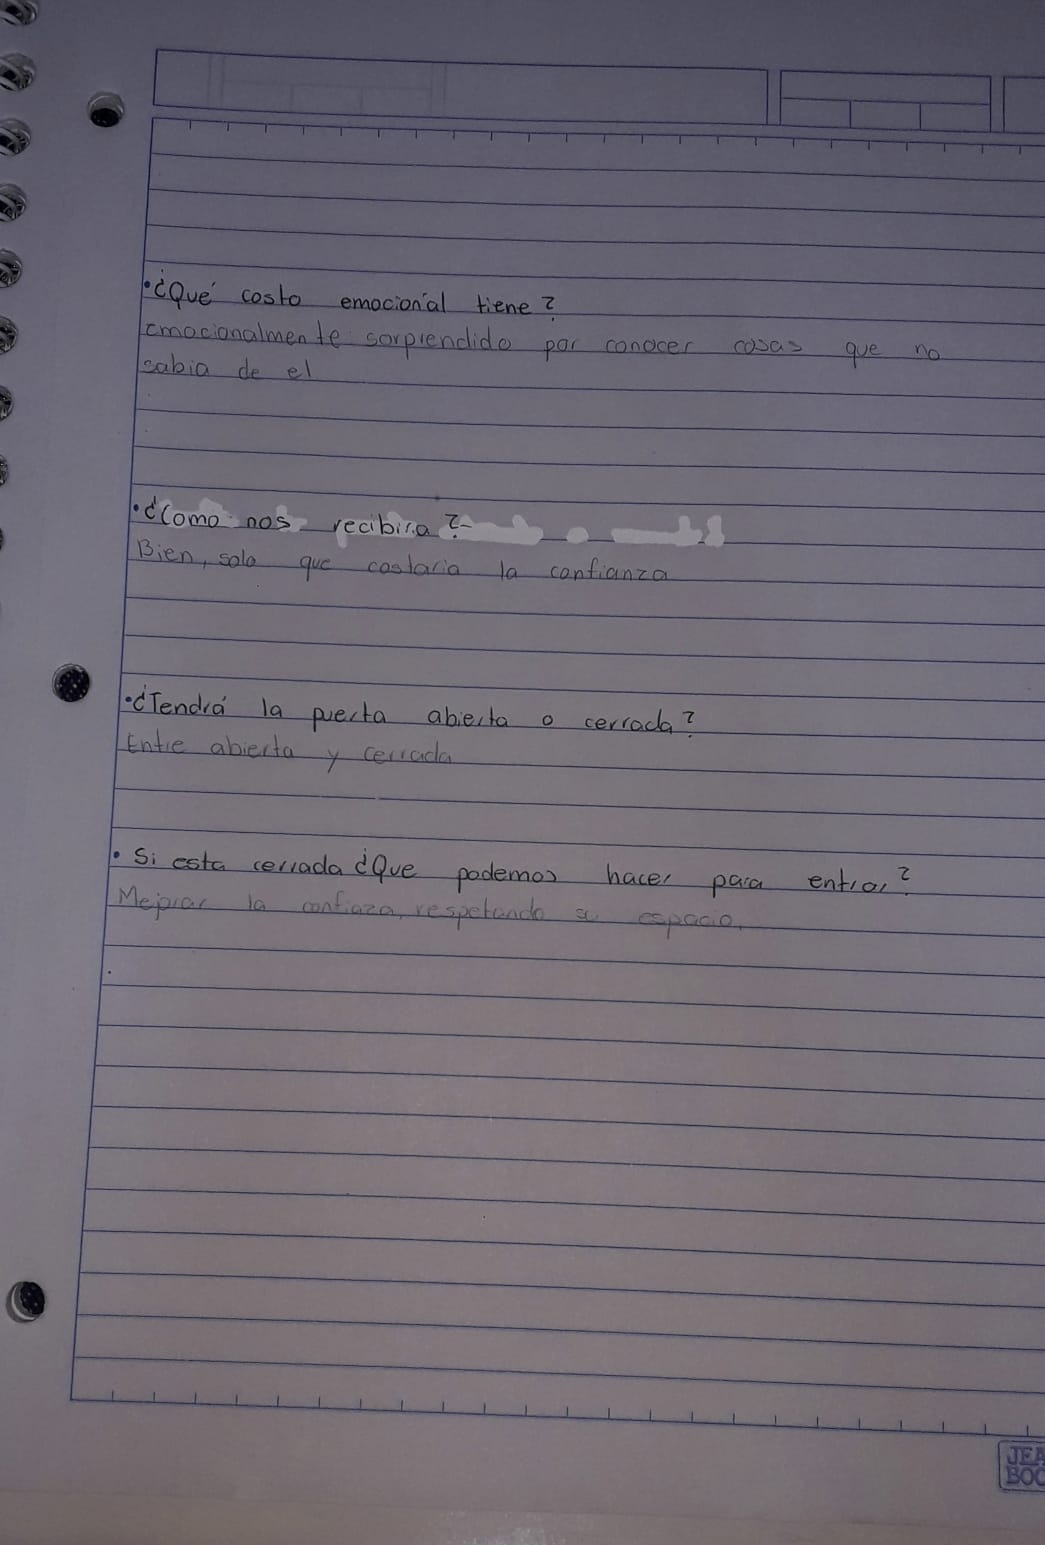 • ¿Qué costo emocional tiene?
Emocionalmente sorprendido por conocer cosas que no
sabia de el
• ¿Como nos recibira?
Bien, solo que costaria la confianza
• ¿Tendrá la puerta abierta o cerrada?
Entre abierta y cerrada
• Si esta cerrada ¿Que podemos hacer para entrar?
Mejorar la confiaza, respetando su espacio.
JEA
BOO